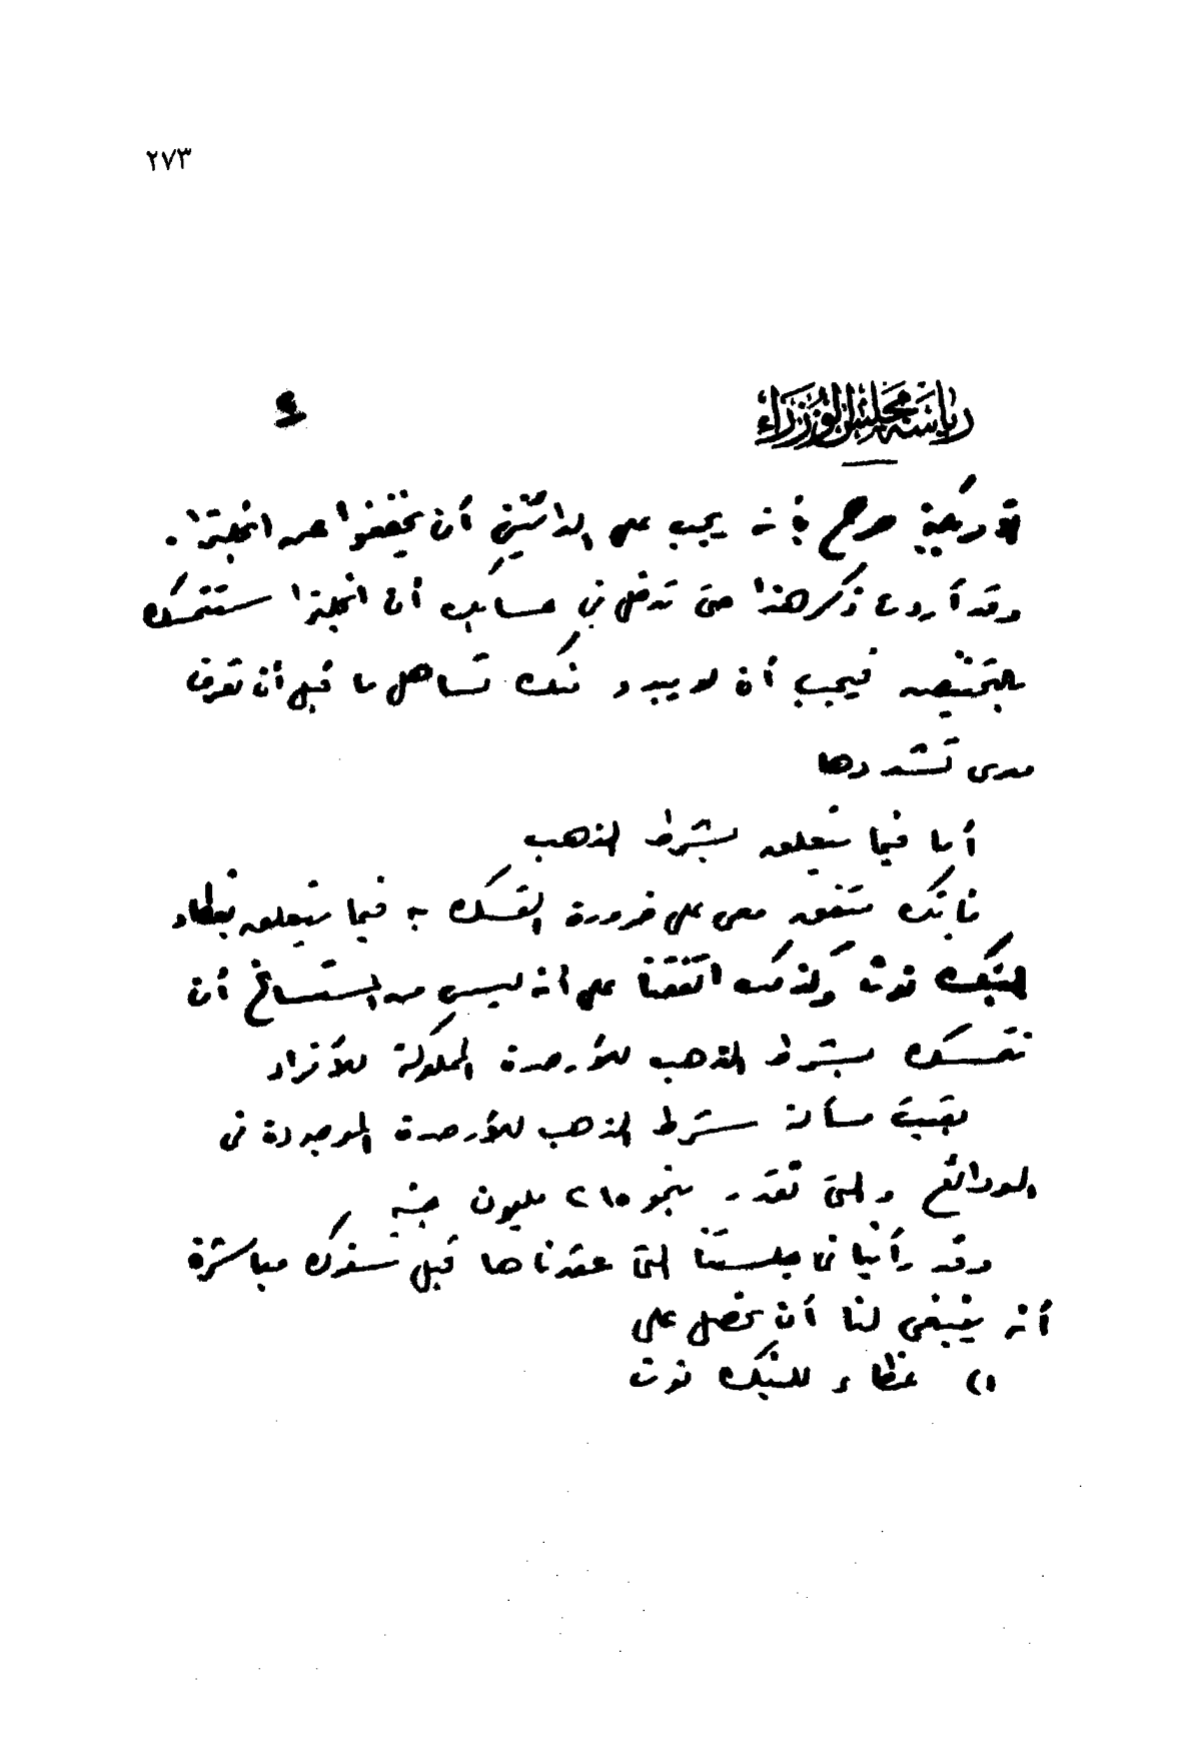 ٢٧٣
رياسة مجلس الوزراء
صرح بأنه يجب على الدائنين أن يخففوا عن انجلترا .
وقد أردت ذكر هذا حتى تدخل في حسابك أن انجلترا ستتمسك
بالتخفيض فيجب أن لا يبدو منك تساهل ما قبل أن تعرف
مدى تشددها
أما فيما يتعلق بشرط الذهب
فانك متفق معى على ضرورة التمسك به فيما يتعلق بغطاء
البنك نوت وكذلك اتفقنا على أنه ليس من المستساغ أن
نتمسك بشرط الذهب للأرصدة المملوكة للأفراد
بقيت مسألة شرط الذهب للأرصدة الموجودة فى
الودائع والتى تقدر بنحو ٢١٥ مليون جنيه
وقد رأينا فى جلستنا التى عقدناها قبل سفرك مباشرة
أنه ينبغى لنا أن نحصل على
١) غطاء للبنك نوت